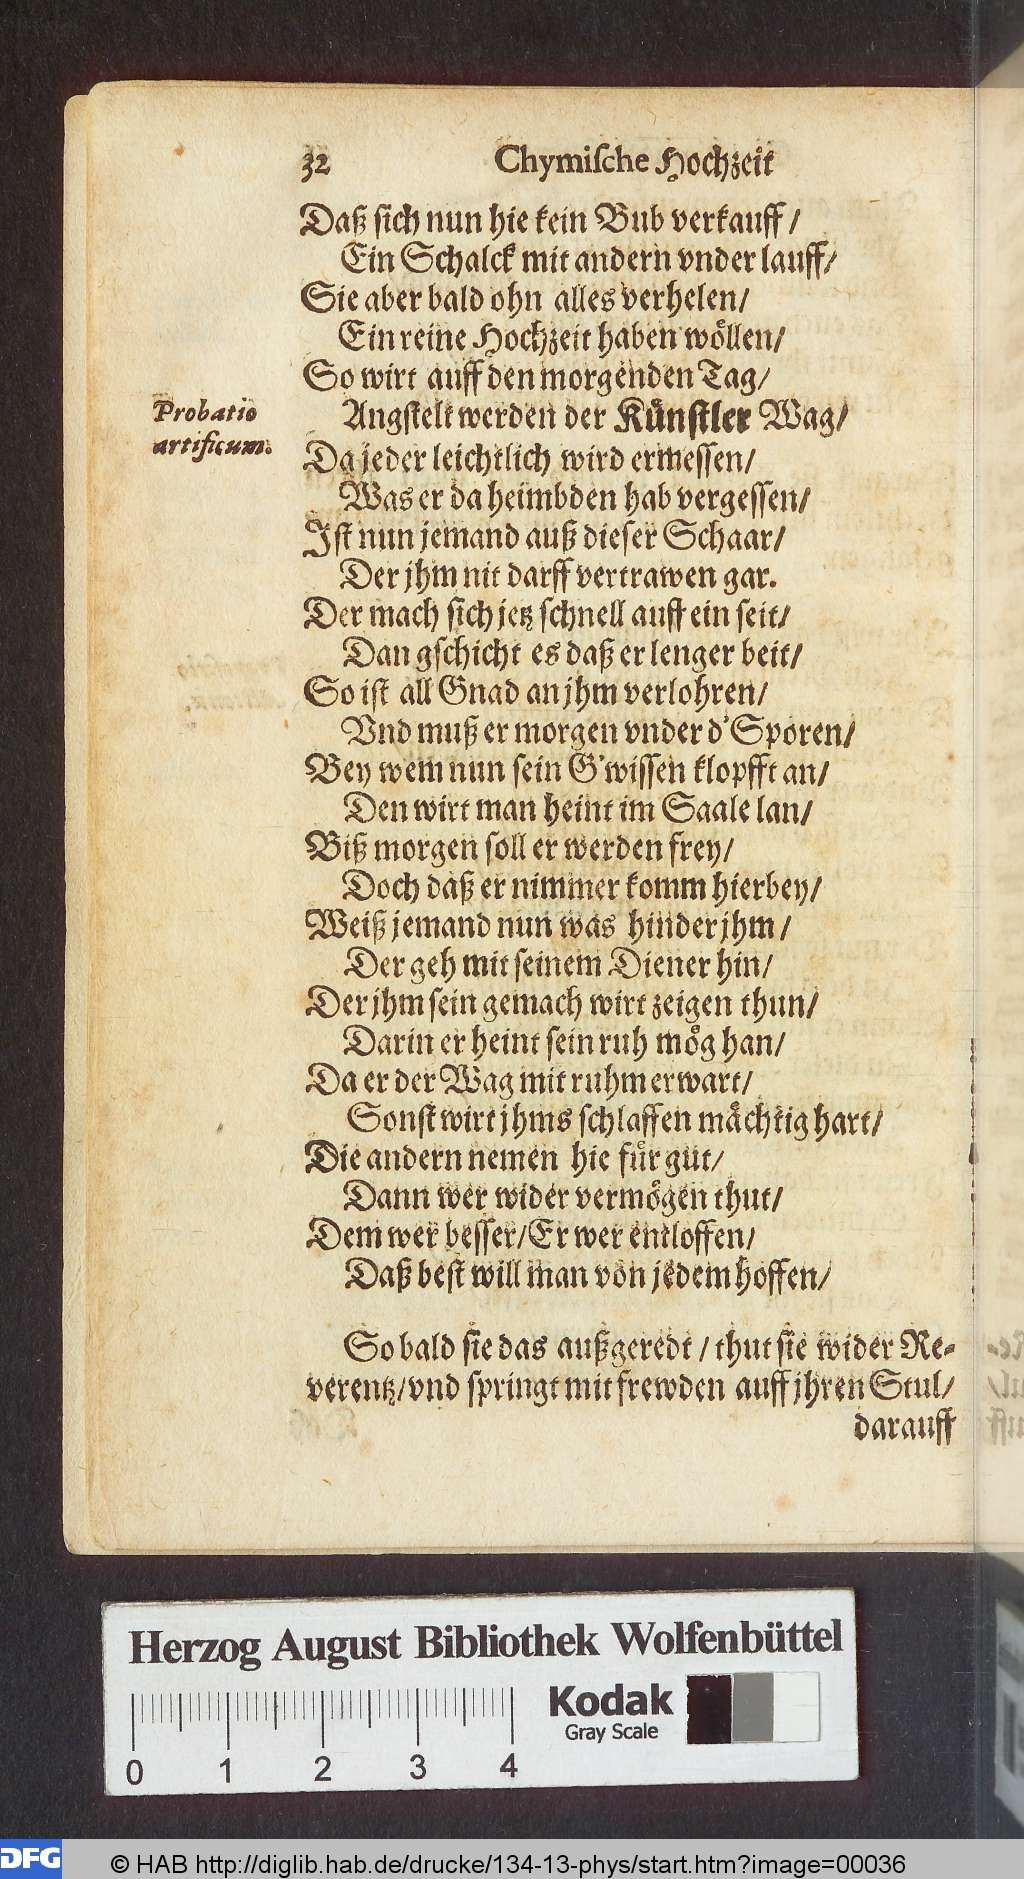 32 Chymiſche Hochzeit
Daß ſich nun hie kein Bub verkauff /
Ein Schalck mit andern vnder lauff/
Sie aber bald ohn alles verhelen/
Ein reine Hochzeit haben wöllen/
So wirt auff den morgenden Tag/
Probatio artificum.
Angſtelt werden der Künſtler Wag/
Da jeder leichtlich wird ermeſſen/
Was er da heimbden hab vergeſſen/
Iſt nun jemand auß dieſer Schaar/
Der jhm nit darff vertrawen gar.
Der mach ſich jetz ſchnell auff ein ſeit/
Dan gſchicht es daß er lenger beit/
So iſt all Gnad an jhm verlohren/
Vnd muß er morgen vnder d'Sporen/
Bey wem nun ſein G'wiſſen klopfft an/
Den wirt man heint im Saale lan/
Biß morgen ſoll er werden frey/
Doch daß er nimmer komm hierbey/
Weiß jemand nun was hinder jhm /
Der geh mit ſeinem Diener hin/
Der jhm ſein gemach wirt zeigen thun/
Darin er heint ſein ruh mög han/
Da er der Wag mit ruhm erwart/
Sonſt wirt jhms ſchlaffen mächtig hart/
Die andern nemen hie für gut/
Dann wer wider vermögen thut/
Dem wer beſſer/Er wer entloffen/
Daß beſt will man von jedem hoffen/
So bald ſie das außgeredt / thut ſie wider Re-
verentz/vnd ſpringt mit frewden auff jhren Stul/
darauff
Herzog August Bibliothek Wolfenbüttel
Kodak
Gray Scale
0 1 2 3 4
DFG © HAB http://diglib.hab.de/drucke/134-13-phys/start.htm?image=00036